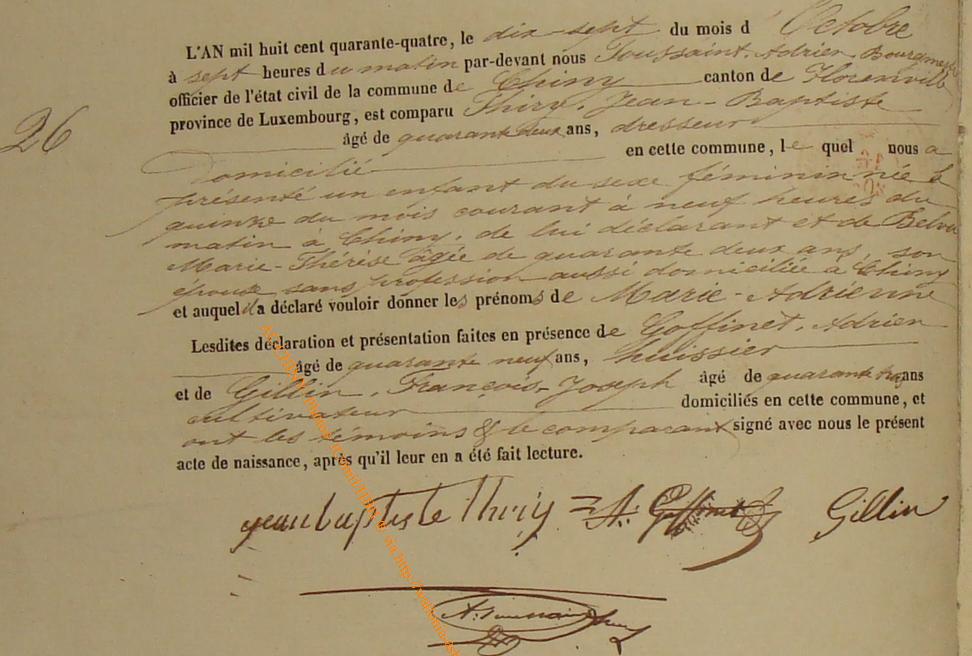 L'AN mil huit cent quarante-quatre, le dix-sept du mois d'Octobre
à sept heures du matin par-devant nous Toussaint, Adrien, Bourgmestre
officier de l'état civil de la commune de Chiny canton de Florenville
province de Luxembourg, est comparu Thiry, Jean-Baptiste
26
âgé de quarante deux ans, dresseur
Domicilié en cette commune, le quel nous a
présenté un enfant du sexe féminin née le
quinze du mois courant à neuf heures du
matin à Chiny, de lui déclarant et de
Marie-Thérèse âgée de quarante deux ans, son
épouse sans profession aussi domiciliée à Chiny
et auquel il a déclaré vouloir donner les prénoms de Marie-Adrienne
Lesdites déclaration et présentation faites en présence de Goffinet, Adrien
âgé de quarante neuf ans, huissier
et de Gillin, François, Joseph âgé de quarante ans
cultivateur domiciliés en cette commune, et
ont les témoins & le comparant signé avec nous le présent
acte de naissance, après qu'il leur en a été fait lecture.
jean baptiste thiry = A. Goffinet Gillin
A. Toussaint